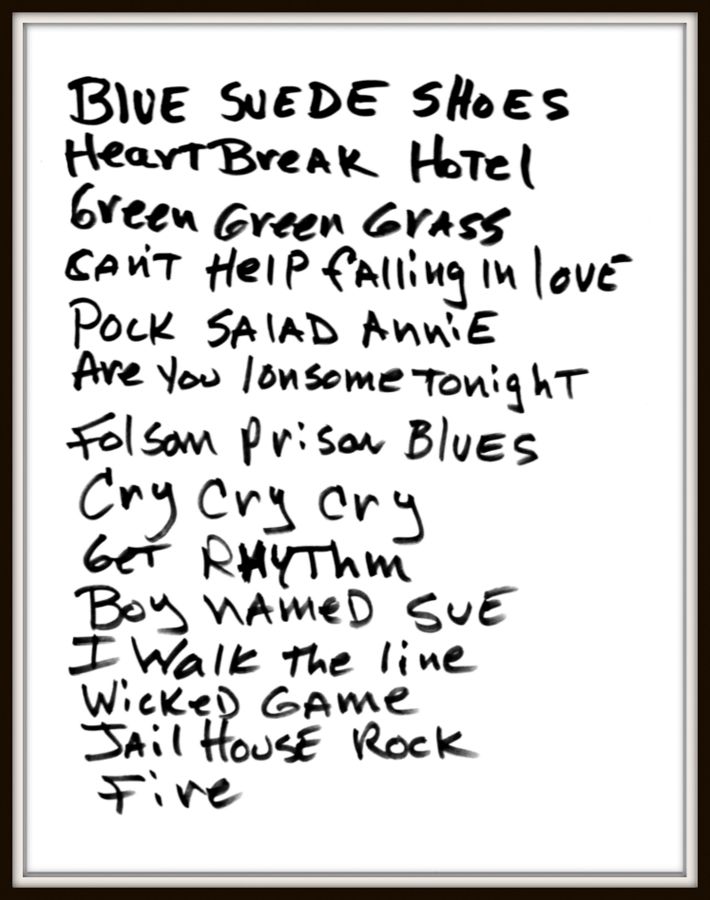 BLUE SUEDE SHOES
HeartBreak Hotel
Green Green Grass
CAN'T HelP fAlling in lovE
POCK SALAD ANNiE
Are You lonsome Tonight
Folsom prison BLUES
Cry Cry Cry
GeT RHYThm
Boy NAMeD SUE
I Walk the line
WickeD GAMe
JAil HOUSE ROCK
Fire